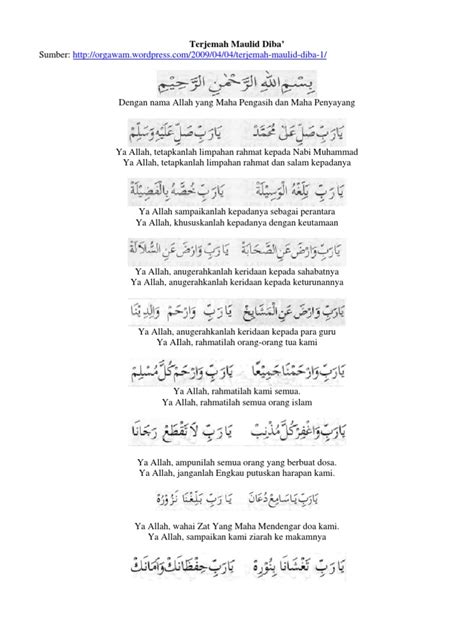 Terjemah Maulid Diba'
Sumber: http://orgawam.wordpress.com/2009/04/04/terjemah-maulid-diba-1/
بِسْمِ اللهِ الرَّحْمٰنِ الرَّحِيْمِ
Dengan nama Allah yang Maha Pengasih dan Maha Penyayang
يَارَبِّ صَلِّ عَلٰى مُحَمَّدْ يَارَبِّ صَلِّ عَلَيْهِ وَسَلِّمْ
Ya Allah, tetapkanlah limpahan rahmat kepada Nabi Muhammad
Ya Allah, tetapkanlah limpahan rahmat dan salam kepadanya
يَارَبِّ بَلِّغْهُ الْوَسِيْلَةْ يَارَبِّ خُصَّهُ بِالْفَضِيْلَةْ
Ya Allah sampaikanlah kepadanya sebagai perantara
Ya Allah, khususkanlah kepadanya dengan keutamaan
يَارَبِّ وَارْضَ عَنِ الصَّحَابَةْ يَارَبِّ وَارْضَ عَنِ السُّلَالَةْ
Ya Allah, anugerahkanlah keridaan kepada sahabatnya
Ya Allah, anugerahkanlah keridaan kepada keturunannya
يَارَبِّ وَارْضَ عَنِ الْمَشَايِخْ يَارَبِّ وَارْحَمْ وَالِدِيْنَا
Ya Allah, anugerahkanlah keridaan kepada para guru
Ya Allah, rahmatilah orang-orang tua kami
يَارَبِّ وَارْحَمْنَا جَمِيْعًا يَارَبِّ وَارْحَمْ كُلَّ مُسْلِمْ
Ya Allah, rahmatilah kami semua.
Ya Allah, rahmatilah semua orang islam
يَارَبِّ وَاغْفِرْ كُلَّ مُذْنِبْ يَارَبِّ لَاتَقْطَعْ رَجَانَا
Ya Allah, ampunilah semua orang yang berbuat dosa.
Ya Allah, janganlah Engkau putuskan harapan kami.
يَارَبِّ يَاسَامِعْ دُعَانَا يَارَبِّ بَلِّغْنَا نَزُوْرُهْ
Ya Allah, wahai Zat Yang Maha Mendengar doa kami.
Ya Allah, sampaikan kami ziarah ke makamnya
يَارَبِّ تَغْشَانَا بِنُوْرِهْ يَارَبِّ حِفْظَانَكْ وَاَمَانَكْ